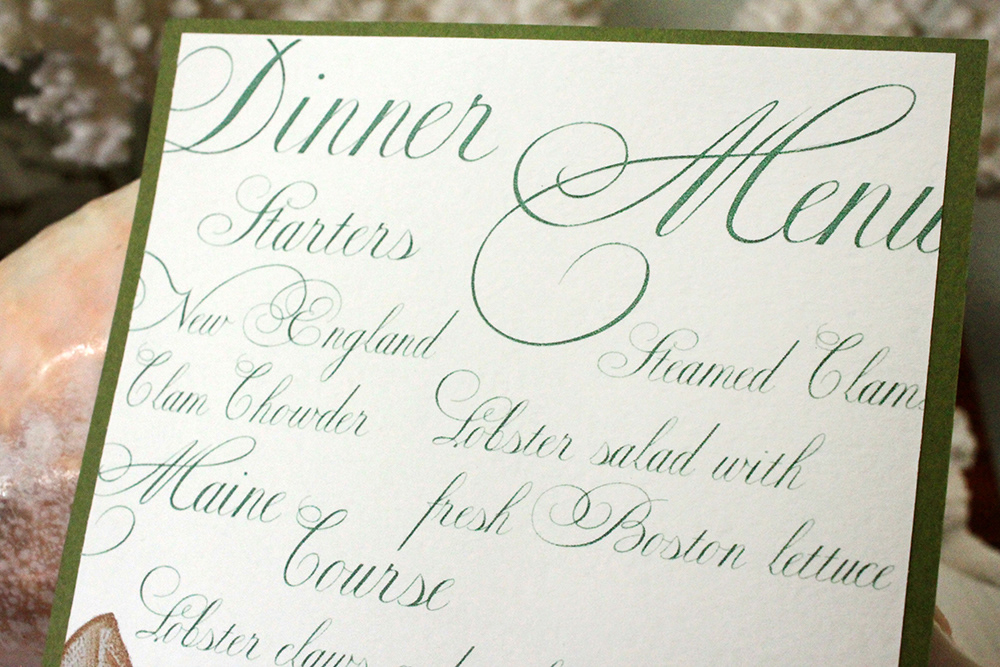 Dinner Menu
Starters
New England
Clam Chowder
Steamed Clams
Lobster salad with
fresh Boston lettuce
Maine
Course
Lobster claws